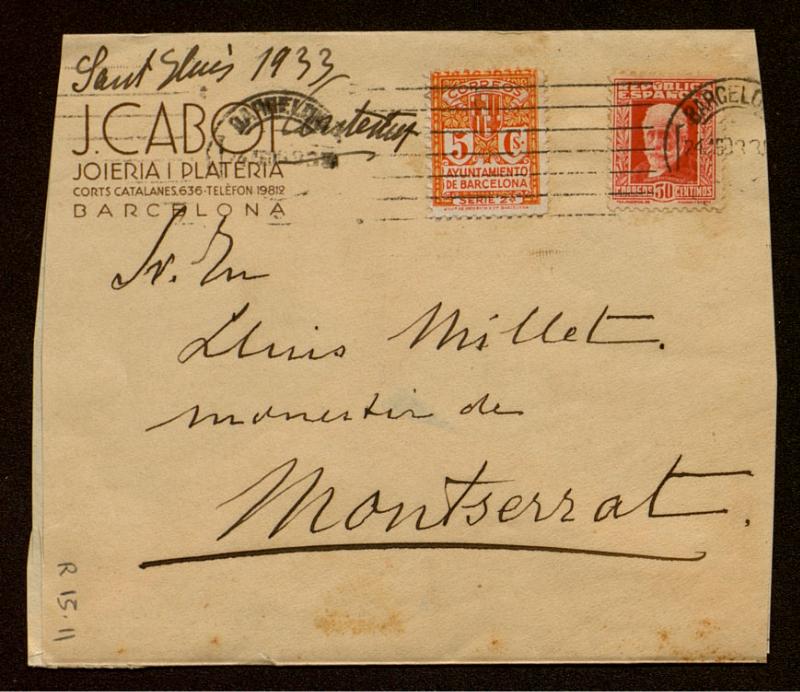 Sant Lluís 1933
J. CABOT
JOIERIA I PLATERIA
CORTS CATALANES, 636 - TELÈFON 19812
BARCELONA
CORREOS
5 Cs.
AYUNTAMIENTO
DE BARCELONA
SERIE 2ª
REPÚBLICA
ESPAÑOLA
CORREOS 30 CENTIMOS
BARCELO
Sr. En
Lluis Millet.
monestir de
Montserrat.
R 15.11